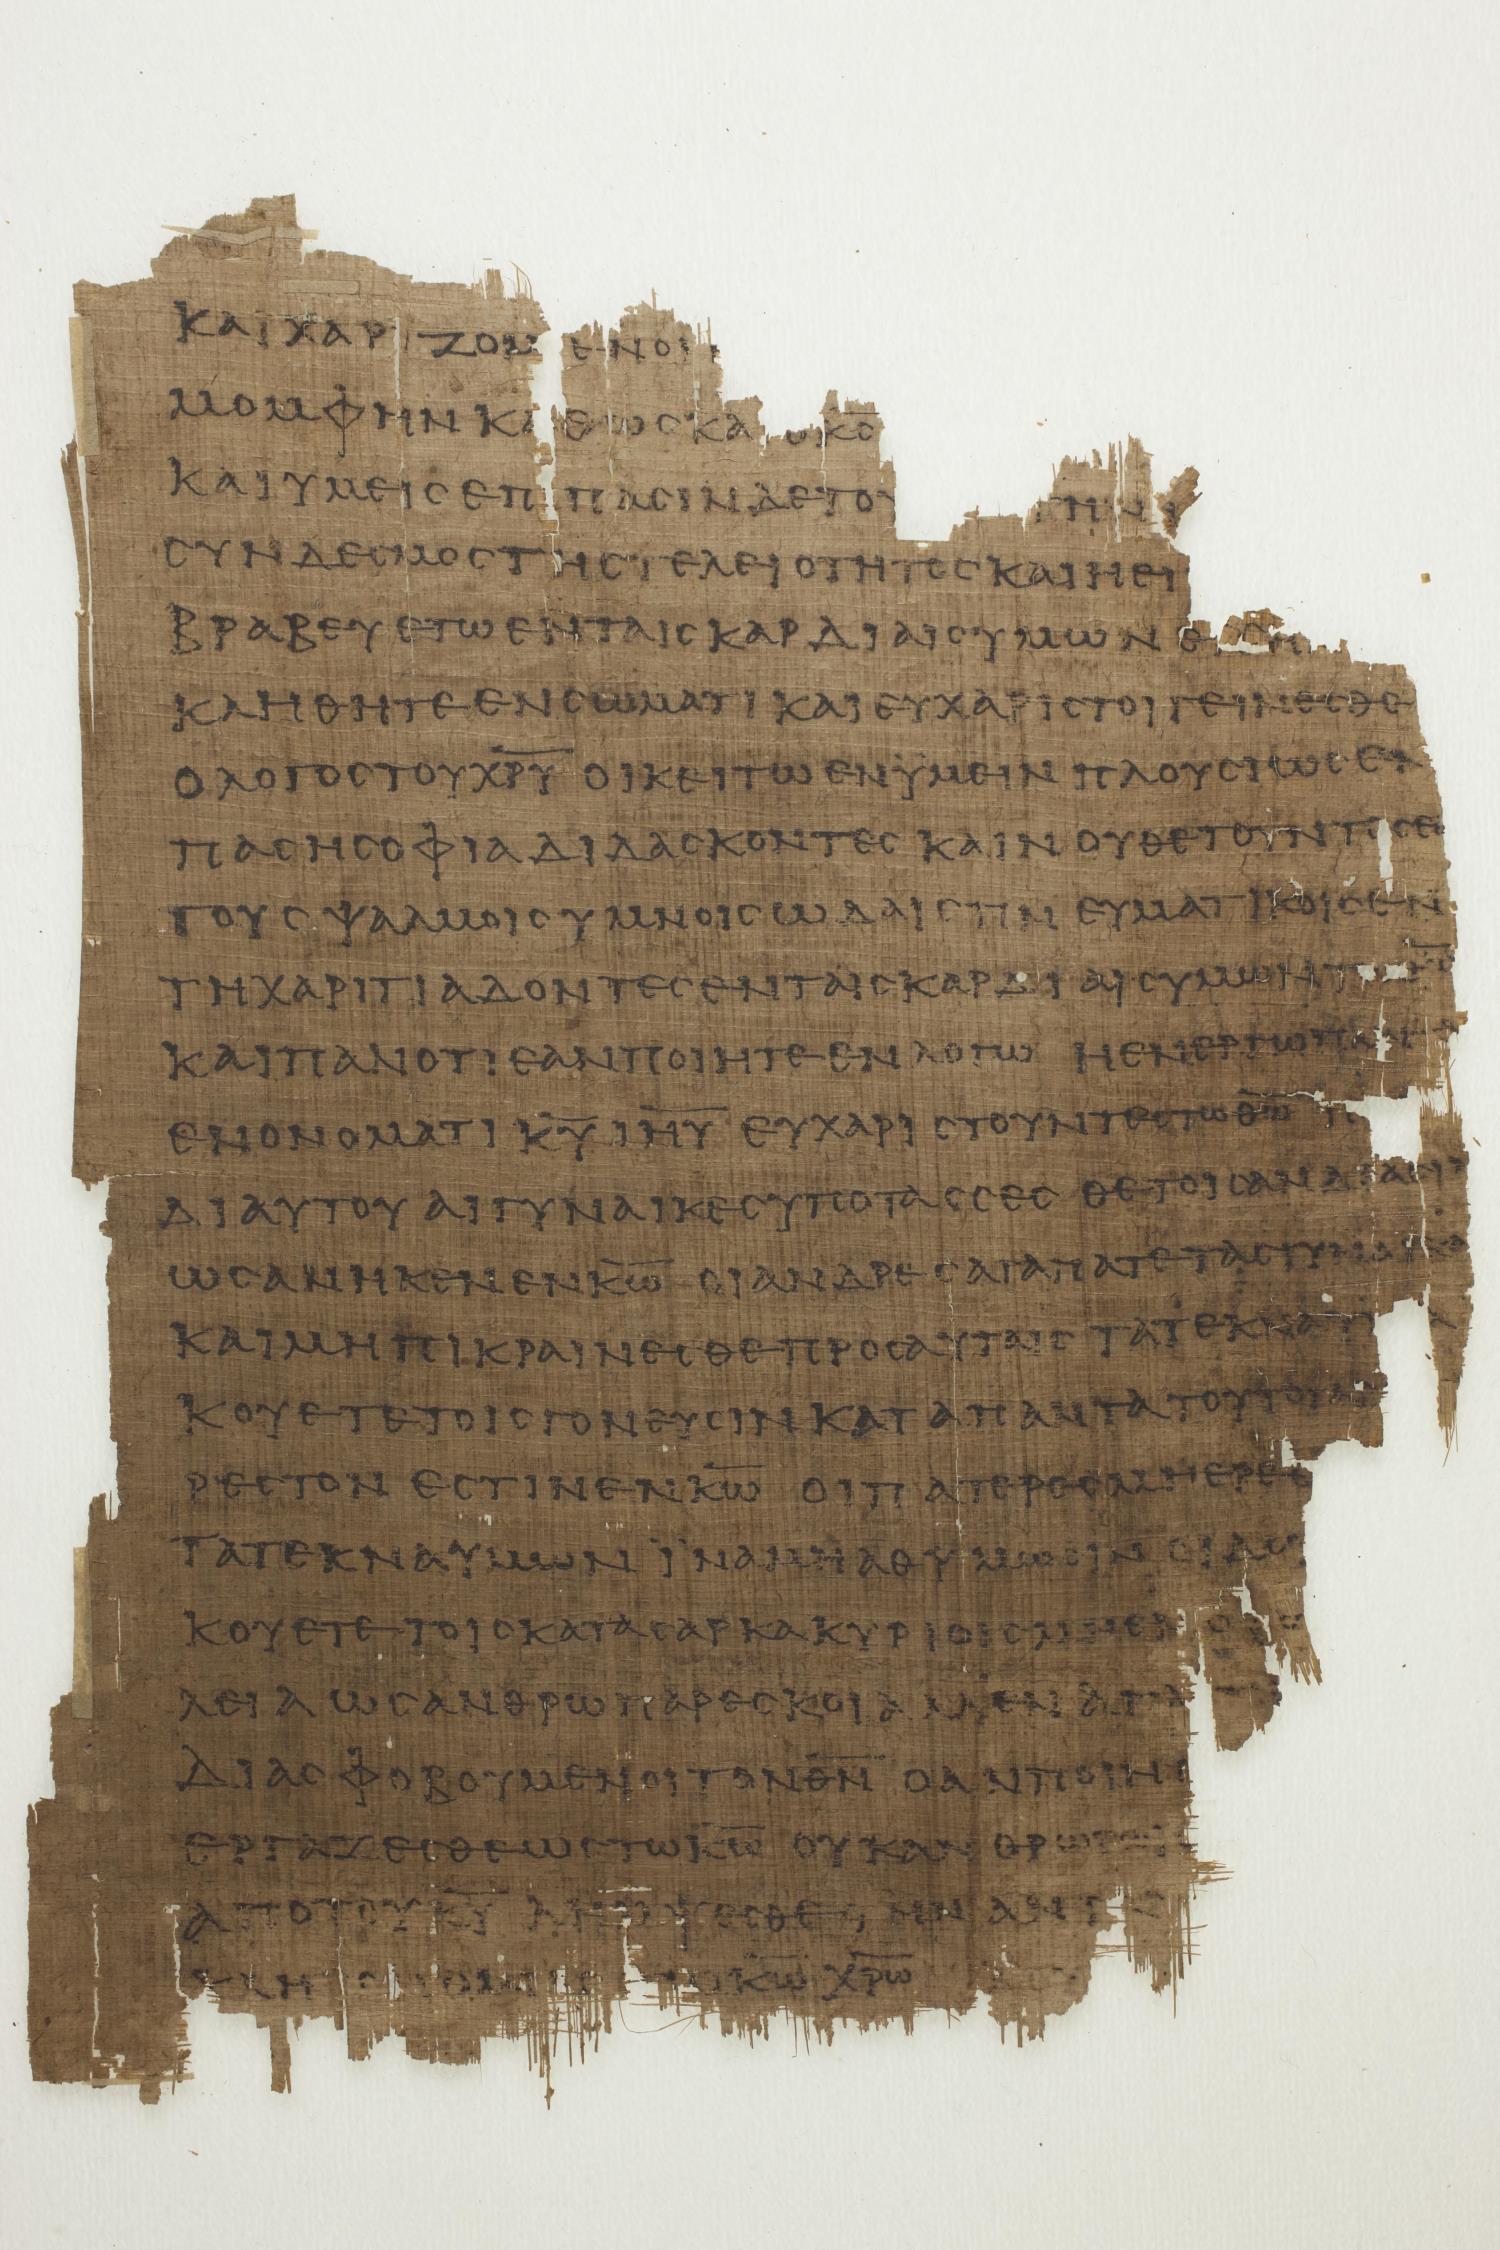 ΚΑΙ ΧΑΡΙΖΟΜΕΝΟΙ
ΜΟΜΦΗΝ ΚΑΘΩΣ ΚΑΙ Ο Κ̅Σ̅
ΚΑΙ ΥΜΕΙΣ ΕΠΙ ΠΑСΙΝ ΔΕ ΤΟΥ ΤΗΝ
СΥΝΔΕСΜΟС ΤΗС ΤΕΛΕΙΟΤΗΤΟС ΚΑΙ Η ΕΙ
ΒΡΑΒΕΥΕΤΩ ΕΝ ΤΑΙС ΚΑΡΔΙΑΙС ΥΜΩΝ
ΚΛΗΘΗΤΕ ΕΝ СΩΜΑΤΙ ΚΑΙ ΕΥΧΑΡΙСΤΟΙ ΓΕΙΝΕСΘΕ
Ο ΛΟΓΟС ΤΟΥ Χ̅Ρ̅Υ̅ ΟΙΚΕΙΤΩ ΕΝ ΫΜΕΙΝ ΠΛΟΥСΙΩС ΕΝ
ΠΑСΗ СΟΦΙΑ ΔΙΔΑСΚΟΝΤΕС ΚΑΙ ΝΟΥΘΕΤΟΥΝΤΕС Ε
ΤΟΥС ΨΑΛΜΟΙС ΥΜΝΟΙС ΩΔΑΙС ΠΝΕΥΜΑΤΙΚΟΙС ΕΝ
ΤΗ ΧΑΡΙΤΙ ΑΔΟΝΤΕС ΕΝ ΤΑΙС ΚΑΡΔΙΑΙС ΥΜΩΝ ΤΩ
ΚΑΙ ΠΑΝ ΟΤΙ ΕΑΝ ΠΟΙΗΤΕ ΕΝ ΛΟΓΩ Η ΕΝ ΕΡΓΩ ΠΑΝΤΑ
ΕΝ ΟΝΟΜΑΤΙ Κ̅Υ̅ Ι̅Η̅Υ̅ ΕΥΧΑΡΙСΤΟΥΝΤΕС ΤΩ Θ̅Ω̅ Π
ΔΙ ΑΥΤΟΥ ΑΙ ΓΥΝΑΙΚΕС ΥΠΟΤΑССΕСΘΕ ΤΟΙС ΑΝΔΡΑСΙΝ
ΩС ΑΝΗΚΕΝ ΕΝ Κ̅Ω̅ ΟΙ ΑΝΔΡΕС ΑΓΑΠΑΤΕ ΤΑС ΓΥΝΑΙΚΑ
ΚΑΙ ΜΗ ΠΙΚΡΑΙΝΕСΘΕ ΠΡΟС ΑΥΤΑΙС ΤΑ ΤΕΚΝΑ ΥΠΑ
ΚΟΥΕΤΕ ΤΟΙС ΓΟΝΕΥСΙΝ ΚΑΤΑ ΠΑΝΤΑ ΤΟΥΤΟ ΓΑΡ
ΡΕСΤΟΝ ΕСΤΙΝ ΕΝ Κ̅Ω̅ ΟΙ ΠΑΤΕΡΕС ΜΗ ΕΡΕΘ
ΤΑ ΤΕΚΝΑ ΫΜΩΝ ΪΝΑ ΜΗ ΑΘΥΜΩСΙΝ ΟΙ ΔΟΥ
ΚΟΥΕΤΕ ΤΟΙС ΚΑΤΑ СΑΡΚΑ ΚΥΡΙΟΙС ΜΗ ΕΝ
ΛΕΙΑ ΩС ΑΝΘΡΩΠΑΡΕСΚΟΙ ΑΛΛ ΕΝ ΑΠΛ
ΔΙΑС ΦΟΒΟΥΜΕΝΟΙ ΤΟΝ Θ̅Ν̅ Ο ΑΝ ΠΟΙΗ
ΕΡΓΑΖΕСΘΕ ΩС ΤΩ Κ̅Ω̅ ΟΥΚ ΑΝΘΡΩΠΟΙ
ΑΠΟ ΤΟΥ Κ̅Υ̅ ΛΗΜΨΕСΘΕ ΤΗΝ ΑΝΤ
ΚΛΗ ΤΩ Κ̅Ω̅ Χ̅Ρ̅Ω̅